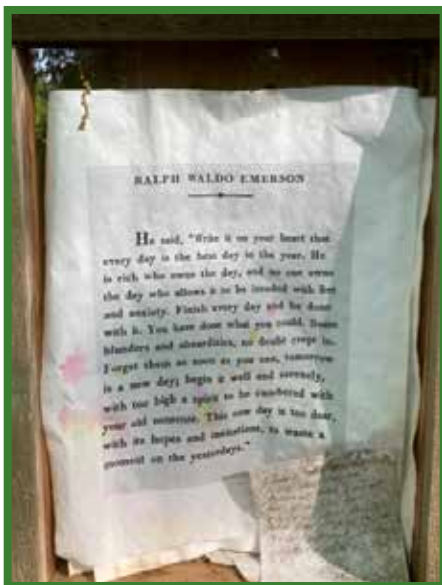 RALPH WALDO EMERSON
He said, "Write it on your heart that
every day is the best day in the year. He
is rich who owns the day, and no one owns
the day who allows it to be invaded with fret
and anxiety. Finish every day and be done
with it. You have done what you could. Some
blunders and absurdities, no doubt crept in.
Forget them as soon as you can, tomorrow
is a new day; begin it well and serenely,
with too high a spirit to be cumbered with
your old nonsense. This new day is too dear,
with its hopes and invitations, to waste a
moment on the yesterdays."